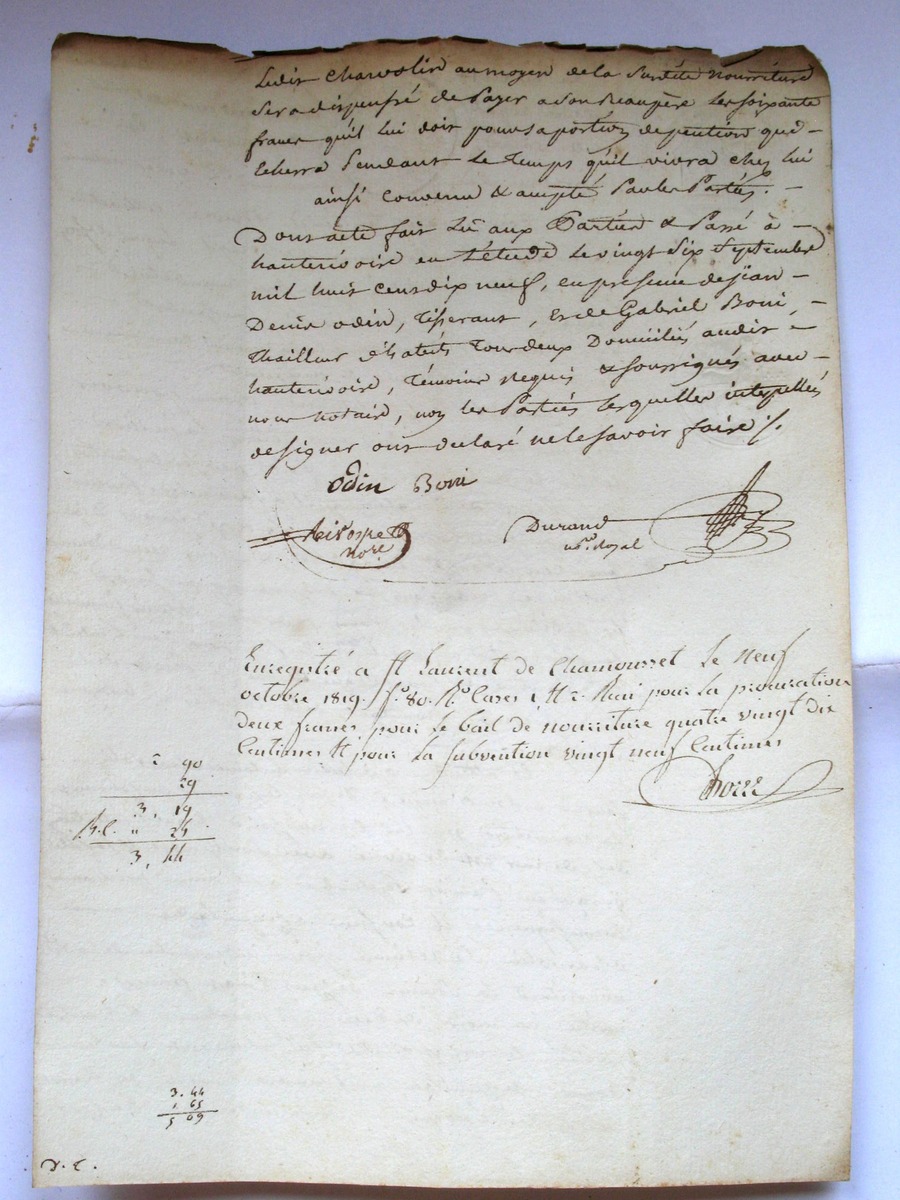 Ledit Charvolin au moyen de la susdite nourriture
sera dispensé de Payer a son Beaupère les soixante
francs qu'il lui doit pour sa portion de pention qui
écherra Pendant le temps qu'il vivra chez lui
ainsi convenu & accepté Par les Parties. -
Dont acte fait Lu aux Parties & Passé à -
hauterivoire en l'étude le vingt six Septembre
mil huit cent dix neuf, en presence de jean -
Denis odin, tisserant, et de Gabriel Boni, -
thailleur d'habits tous deux Domiciliés audit -
hauterivoire, témoins requis & soussignés avec -
nous notaire, non les Parties lesquelles interpellés
de signer ont declaré ne le savoir faire /.
Odin Boni
nore
Durand
nre Royal
Enregistré a St Laurent de Chamousset le neuf
octobre 1819. fo. 80. Ro. Cases Reçu pour la procuration
deux francs pour le bail de nourriture quatre vingt dix
Centimes Et pour la subvention vingt neuf Centimes
2 90
29
3, 19
" 25
3, 44
3. 44
1 65
5 09